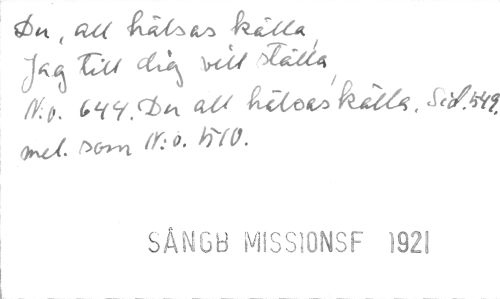 Du, all hälsas källa,
Jag till dig vill ställa,
N:o. 644. Du all hälsas källa. Sid. 549.
mel. som N:o. 510.
SÅNGB MISSIONSF 1921